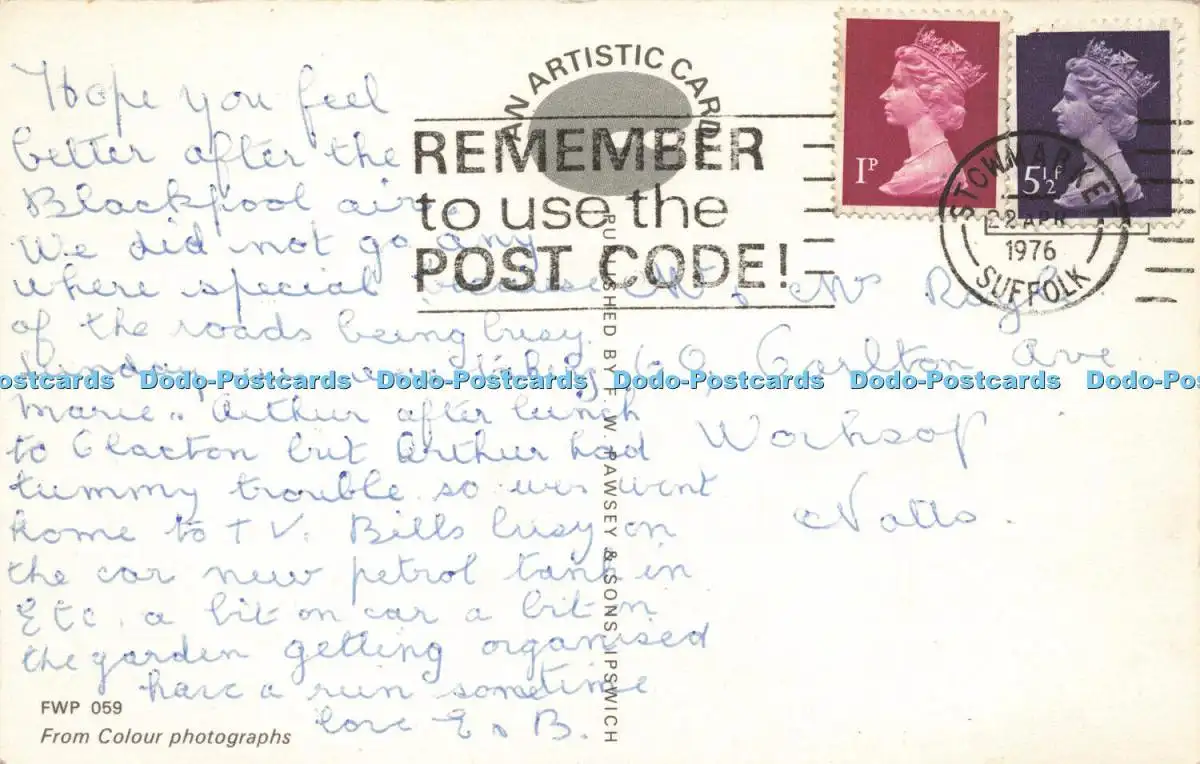 Hope you feel
better after the
Blackpool air.
We did not go any
where special because
of the roads being busy.
Sunday we were taking
Marie & Arthur after lunch
to Clacton but Arthur had
tummy trouble so went
home to TV. Bills busy on
the car new petrol tank in
Etc. a bit on car a bit on
the garden getting organised
have a run sometime
love E & B.
FWP 059
From Colour photographs
AN ARTISTIC CARD
PUBLISHED BY F. W. PAWSEY & SONS, IPSWICH
REMEMBER
to use the
POST CODE!
1P
5½P
STOWMARKET
22 APR
1976
SUFFOLK
Mr & Mrs
60, Carlton Ave
Worksop
Notts.
Dodo-Postcards Dodo-Postcards Dodo-Postcards Dodo-Postcards Dodo-Postcards